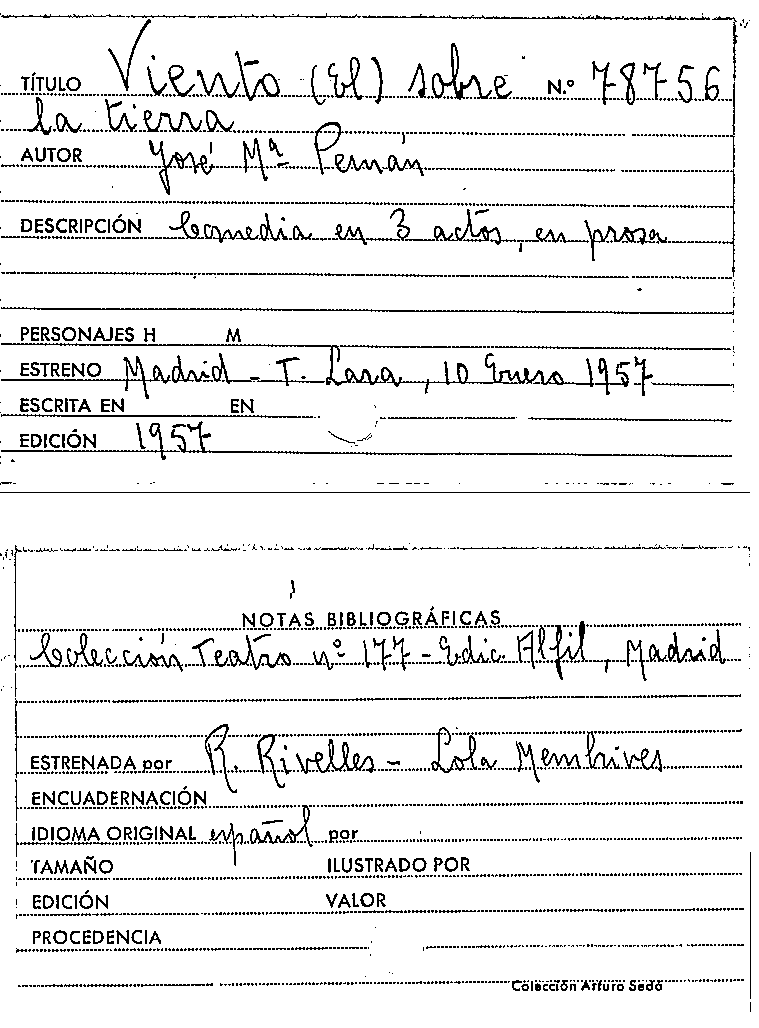 TÍTULO Viento (El) sobre N.º 78756
la tierra
AUTOR José Mª Pemán
DESCRIPCIÓN Comedia en 3 actos, en prosa
PERSONAJES H M
ESTRENO Madrid - T. Lara, 10 Enero 1957
ESCRITA EN EN
EDICIÓN 1957
NOTAS BIBLIOGRÁFICAS
Colección Teatro nº 177 - Edic. Alfil, Madrid
ESTRENADA por R. Rivelles - Lola Membrives
ENCUADERNACIÓN
IDIOMA ORIGINAL español por
TAMAÑO ILUSTRADO POR
EDICIÓN VALOR
PROCEDENCIA
Colección Arturo Sedó